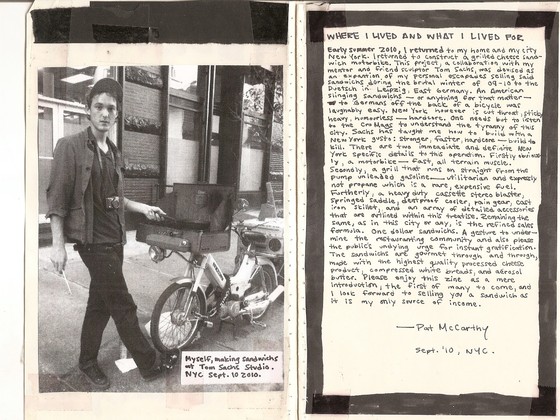 Myself, making sandwichs
at Tom Sachs Studio.
NYC Sept. 10 2010.
WHERE I LIVED AND WHAT I LIVED FOR
Early summer 2010, I returned to my home and my city
New York. I returned to construct a grilled cheese sand-
wich motorbike. This project, a collaboration with my
mentor and friend sculptor Tom Sachs, was devised as
an expansion of my personal escapades selling said
sandwichs during the brutal winter of 09-10 to the
Deutsch in Leipzig, East Germany. An American
slinging sandwichs — or anything for that matter —
to Germans off the back of a bicycle was
laughably easy. New York however is cut throat, sticky
heavy, humorless — hardcore. One needs but to listen
to the Cro Mags to understand the tyranny of this
city. Sachs has taught me how to build with a
New York gusto: stronger, faster, hardcore — build to
kill. There are two immediate and definite New
York specific details to this operation. Firstly obvious-
ly, a motorbike — fast, all terrain muscle.
Secondly, a grill that runs on straight from the
pump unleaded gasoline — utilitarian and expressly
not propane which is a rare, expensive fuel.
Furtherly, a heavy duty cassette stereo blaster,
springed saddle, dustproof cooler, rain gear, cast
iron skillet, and an array of detailed accessories
that are outlined within this treatise. Remaining the
same, as in this city or any, is the refined sales
formula. One dollar sandwichs. A gesture to under-
mine the restauranting community and also please
the public's undying urge for instant gratification.
The sandwichs are gourmet through and through,
made with the highest quality processed cheese
product, compressed white breads, and aerosol
butter. Please enjoy this zine as a mere
introduction, the first of many to come, and
I look forward to selling you a sandwich as
it is my only source of income.
— Pat McCarthy
Sept. '10, NYC.